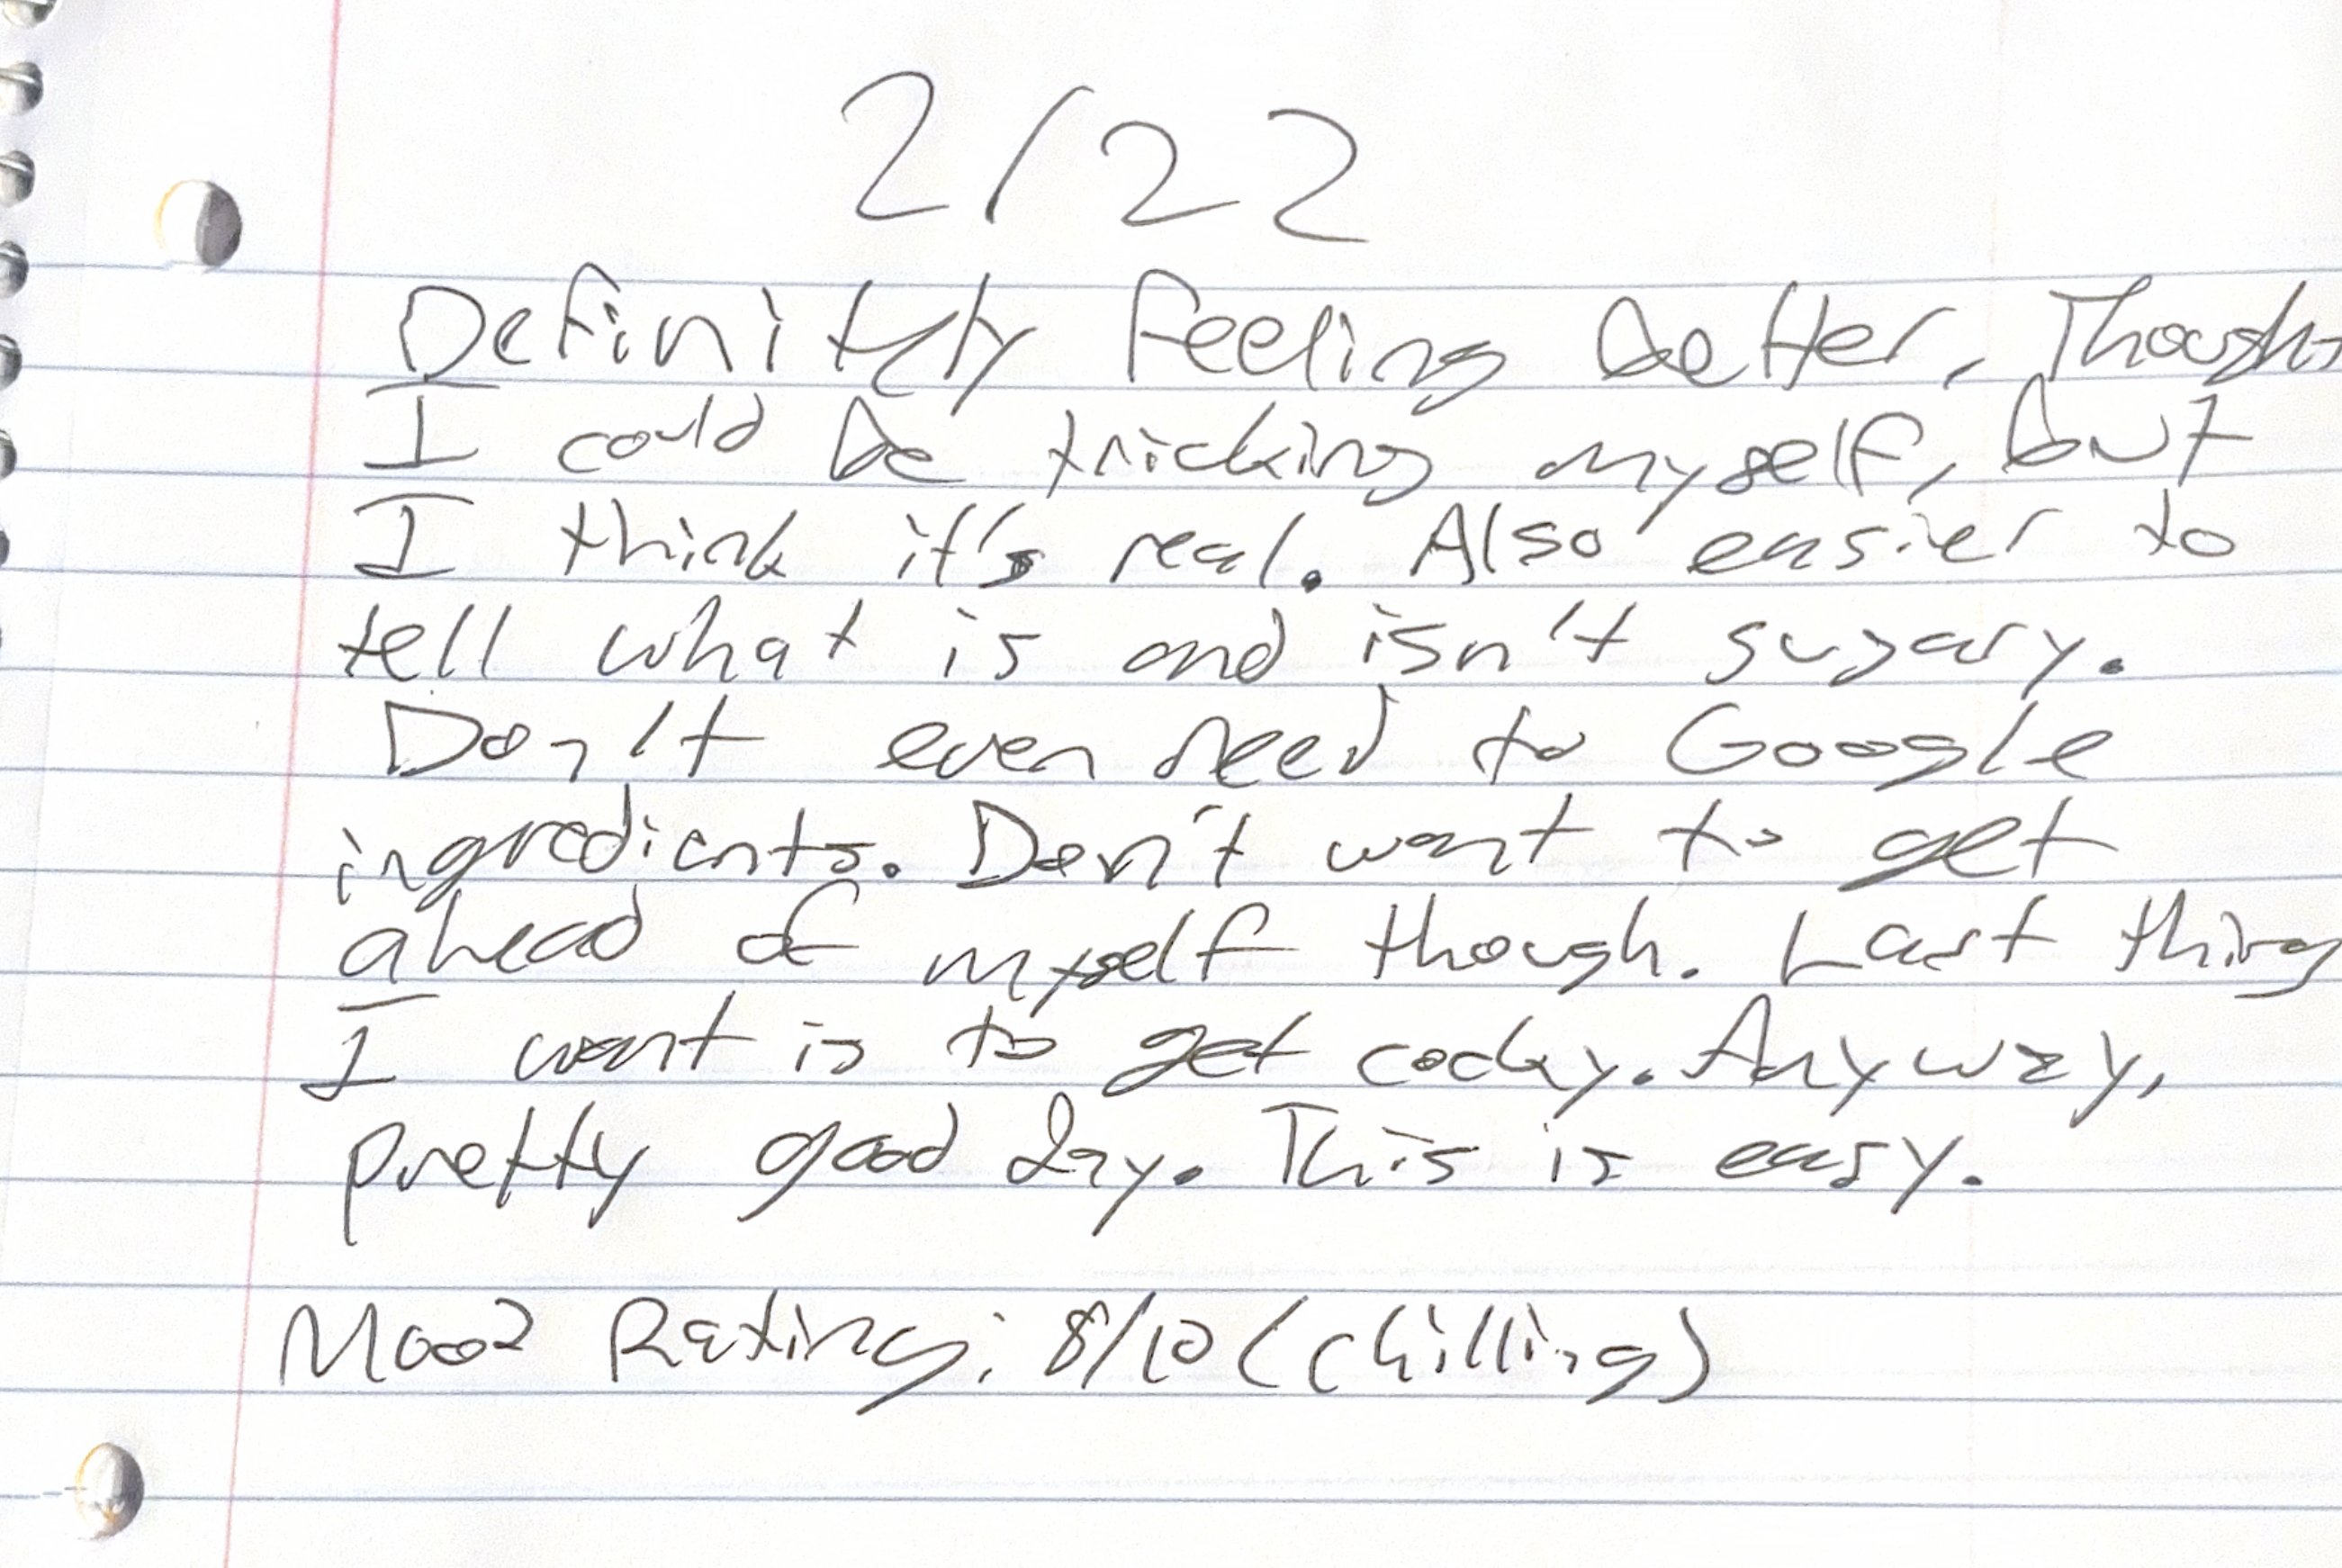 2/22
Definitely feeling better, Though
I could be tricking myself, but
I think it's real. Also easier to
tell what is and isn't sugary.
Don't even need to Google
ingredients. Don't want to get
ahead of myself though. Last thing
I want is to get cocky. Anyway,
pretty good day. This is easy.
Mood Rating: 8/10 (chilling)